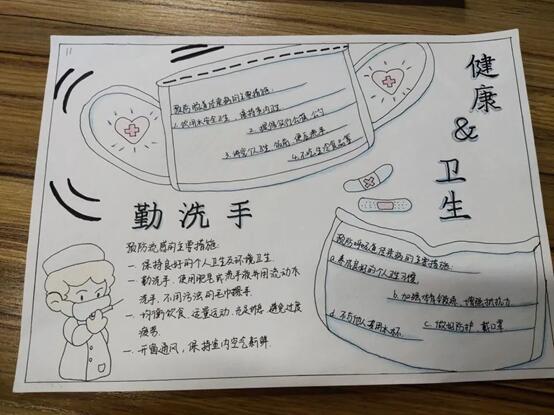 健康
&
卫生
预防肠道传染病的主要措施:
1.饮用水安全卫生,保持室内卫生
2.提倡分餐公筷 公勺
3.讲究个人卫生,饭前、便后洗手
4.不吃生冷食品等
勤洗手
预防流感的主要措施
一、保持良好的个人卫生及环境卫生.
一、勤洗手、使用肥皂或洗手液并用流动水
洗手,不用污浊的毛巾擦手.
一、均衡饮食、适量运动、充足休息,避免过度
疲劳.
一、开窗通风,保持室内空气新鲜.
预防呼吸道传染病的主要措施:
a.养成良好的个人卫生习惯
b.加强体育锻炼,增强抵抗力
c.做好防护,戴口罩
d.不与他人共用水杯